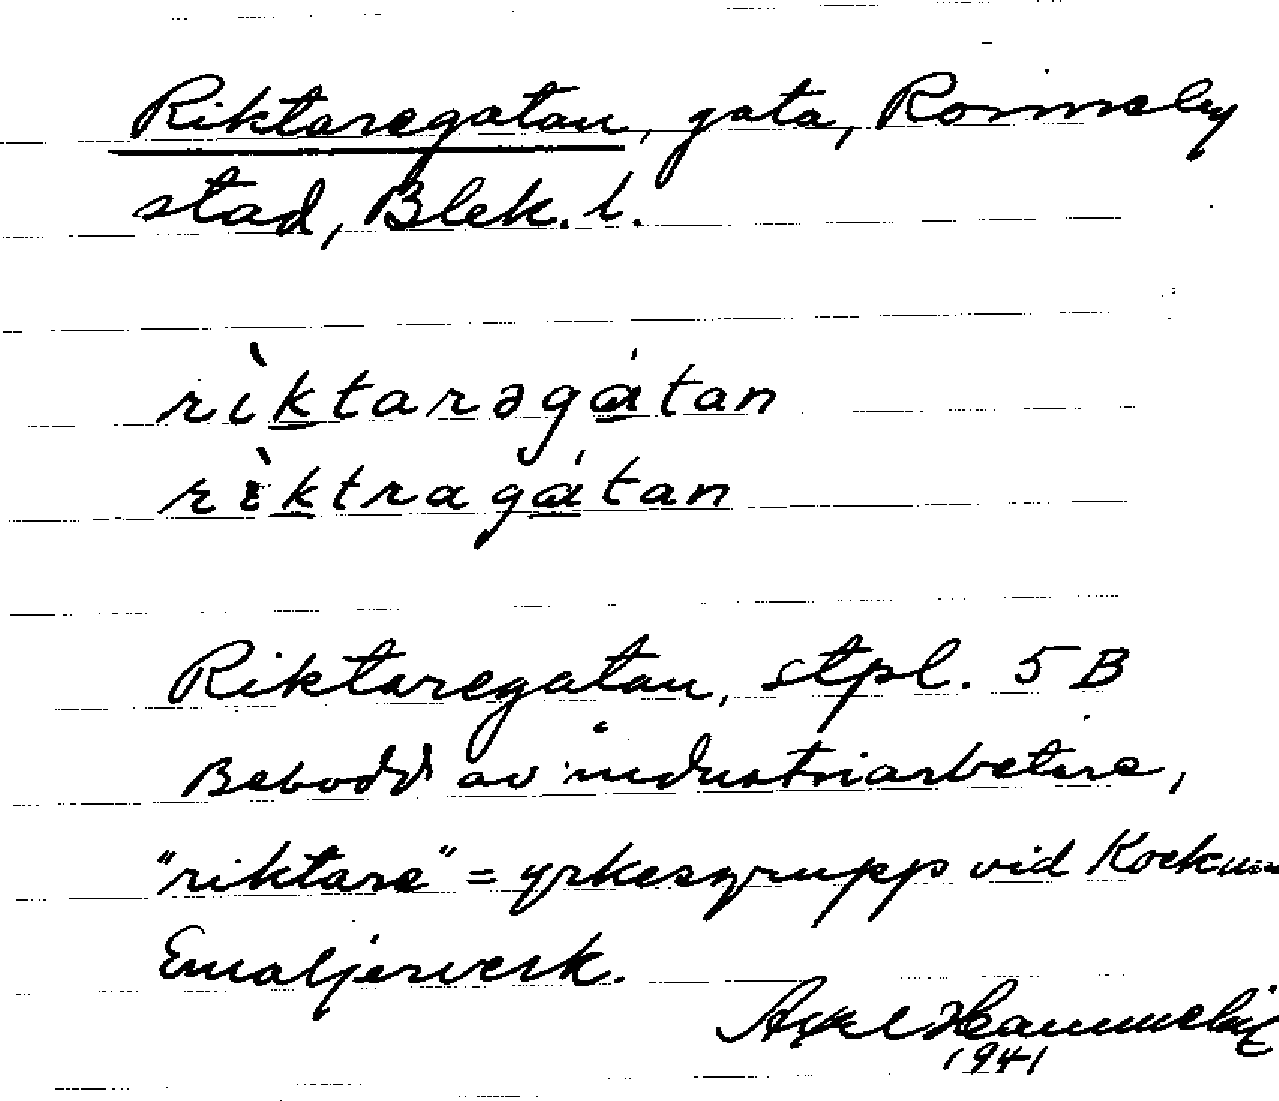 Riktaregatan, gata, Ronneby
stad, Blek. l.
rìktarəgátan
rìktragátan
Riktaregatan, stpl. 5 B
Bebodd av industriarbetare,
"riktare" = yrkesgrupp vid Kockums
Emaljerverk.
Axel
1941